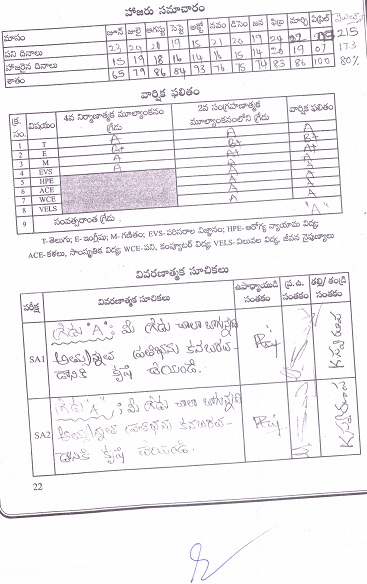 హాజరు సమాచారం
మాసం జూన్ జులై ఆగష్టు సెప్టె అక్టో నవం డిసెం జన ఫిబ్ర మార్చి ఏప్రిల్
పని దినాలు 23 24 15 21 20 19 24 215
హాజరైన దినాలు 15 19 18 16 14 16 15 14 20 19 07 173
శాతం 65 79 86 84 93 76 75 74 83 86 100 80%
వార్షిక ఫలితం
క్ర. సం. విషయం 4వ నిర్మాణాత్మక మూల్యాంకనం గ్రేడు 2వ సంగ్రహణాత్మక మూల్యాంకనంలోని గ్రేడు వార్షిక ఫలితం
1 T A A A
2 E B+ B+ B+
3 M A A A
4 EVS A A A
5 HPE A A
6 ACE A A
7 WCE A A
8 VELS A A
9 సంవత్సరాంత గ్రేడు "A"
T-తెలుగు; E-ఇంగ్లీషు; M-గణితం; EVS-పరిసరాల విజ్ఞానం; HPE-ఆరోగ్య వ్యాయామ విద్య;
ACE-కళలు, సాంస్కృతిక విద్య; WCE-పని, కంప్యూటర్ విద్య; VELS-విలువల విద్య, జీవన నైపుణ్యాలు
వివరణాత్మక సూచికలు
పరీక్ష వివరణాత్మక సూచికలు ఉపాధ్యాయుడి సంతకం ప్ర.ఉ. సంతకం తల్లి/ తండ్రి సంతకం
SA1 గ్రేడు "A"; మీ గ్రేడు చాలా బాగున్నది
ప్రతిభను కనబరచ-
డానికి కృషి చేయండి.
SA2 గ్రేడు "A"; మీ గ్రేడు చాలా బాగున్నది
ప్రతిభను కనబరచ-
డానికి కృషి చేయండి.
22